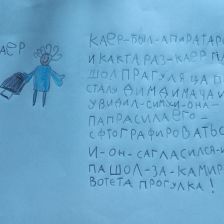 КАЕР
КАЕР-БЫЛ-АПИРАТАРО
И КАК ТА РАЗ-КАЕР ПА
ШОЛ ПРАГУЛЯЦА П
СТАЛУ ДИМА И МАЧА И
УВИДИЛ-СИМИ-ОНА
ПАПРАСИЛА ЕГО-
СФТОГРАФИРОВАТЬСЯ
И-ОН-САГЛАСИЛСЯ-И
ПАШОЛ-ЗА-КАМИРА
ВОТ ЕТА ПРОГУЛКА!